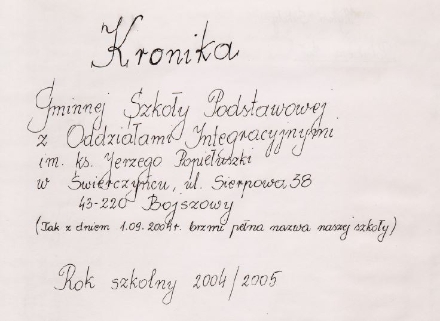 Kronika
Gminnej Szkoły Podstawowej
z Oddziałami Integracyjnymi
im. ks. Jerzego Popiełuszki
w Świerczyńcu, ul. Sierpowa 38
43-220 Bojszowy
(Tak z dniem 1.09.2004r. brzmi pełna nazwa naszej szkoły)
Rok szkolny 2004/2005